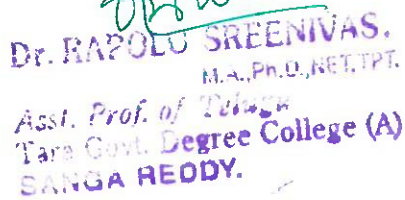 Dr. RAPOLU SREENIVAS.
M.A.,Ph.D.,NET,TPT.
Asst. Prof. of Telugu
Tara Govt. Degree College (A)
SANGA REDDY.